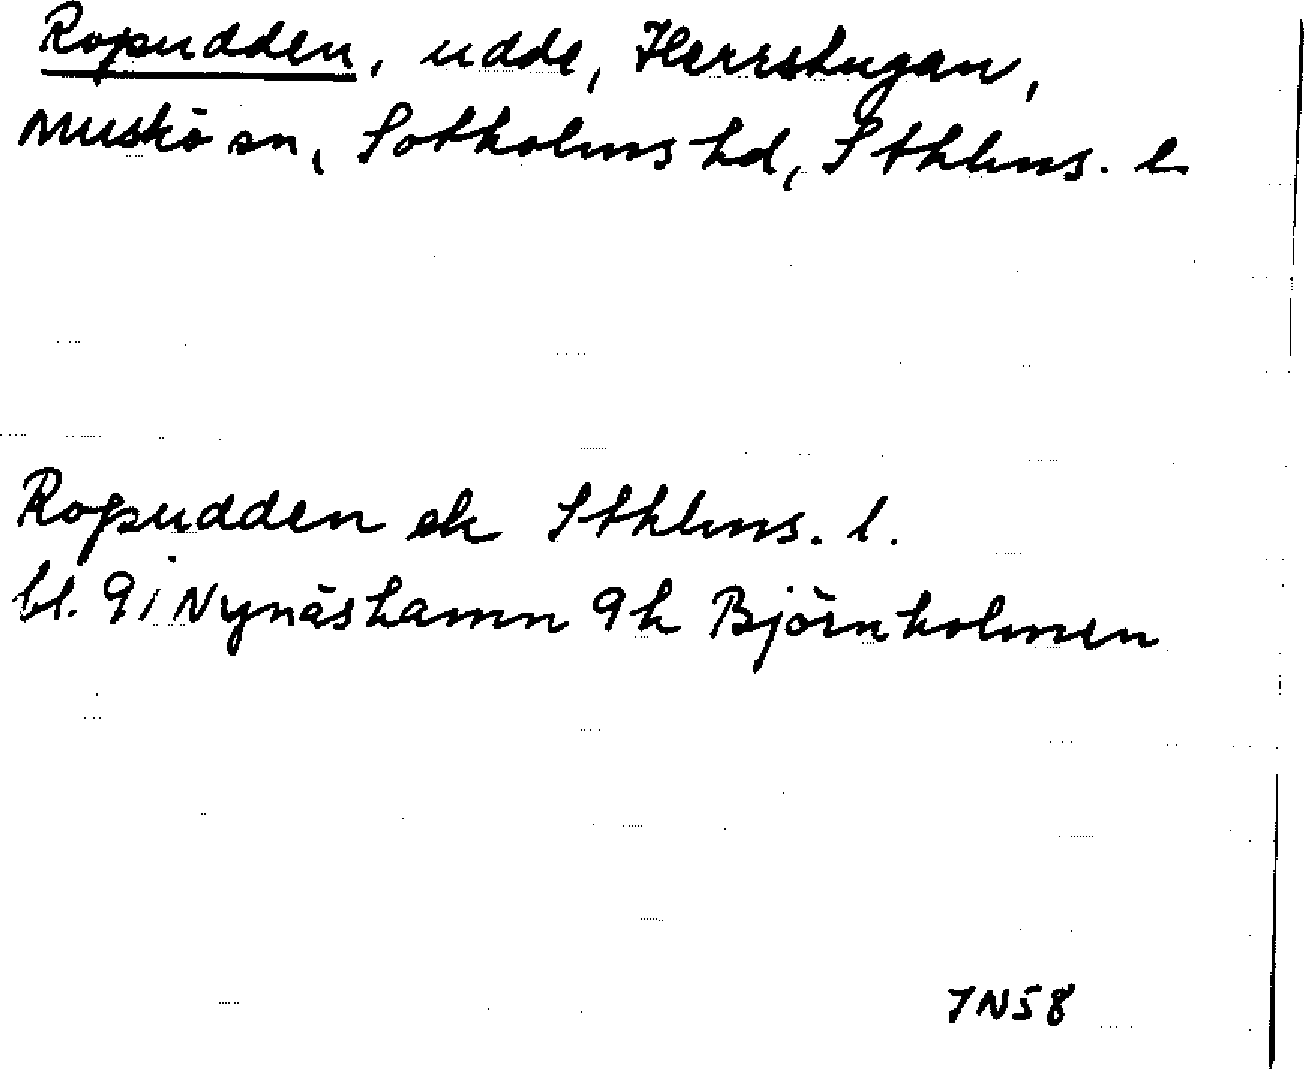 Ropudden, udde, Herrstugan,
Muskö sn, Sotholms hd, Sthlms. l
Ropudden ek Sthlms. l.
bl. 9i Nynäshamn 9h Björnholmen
7N58